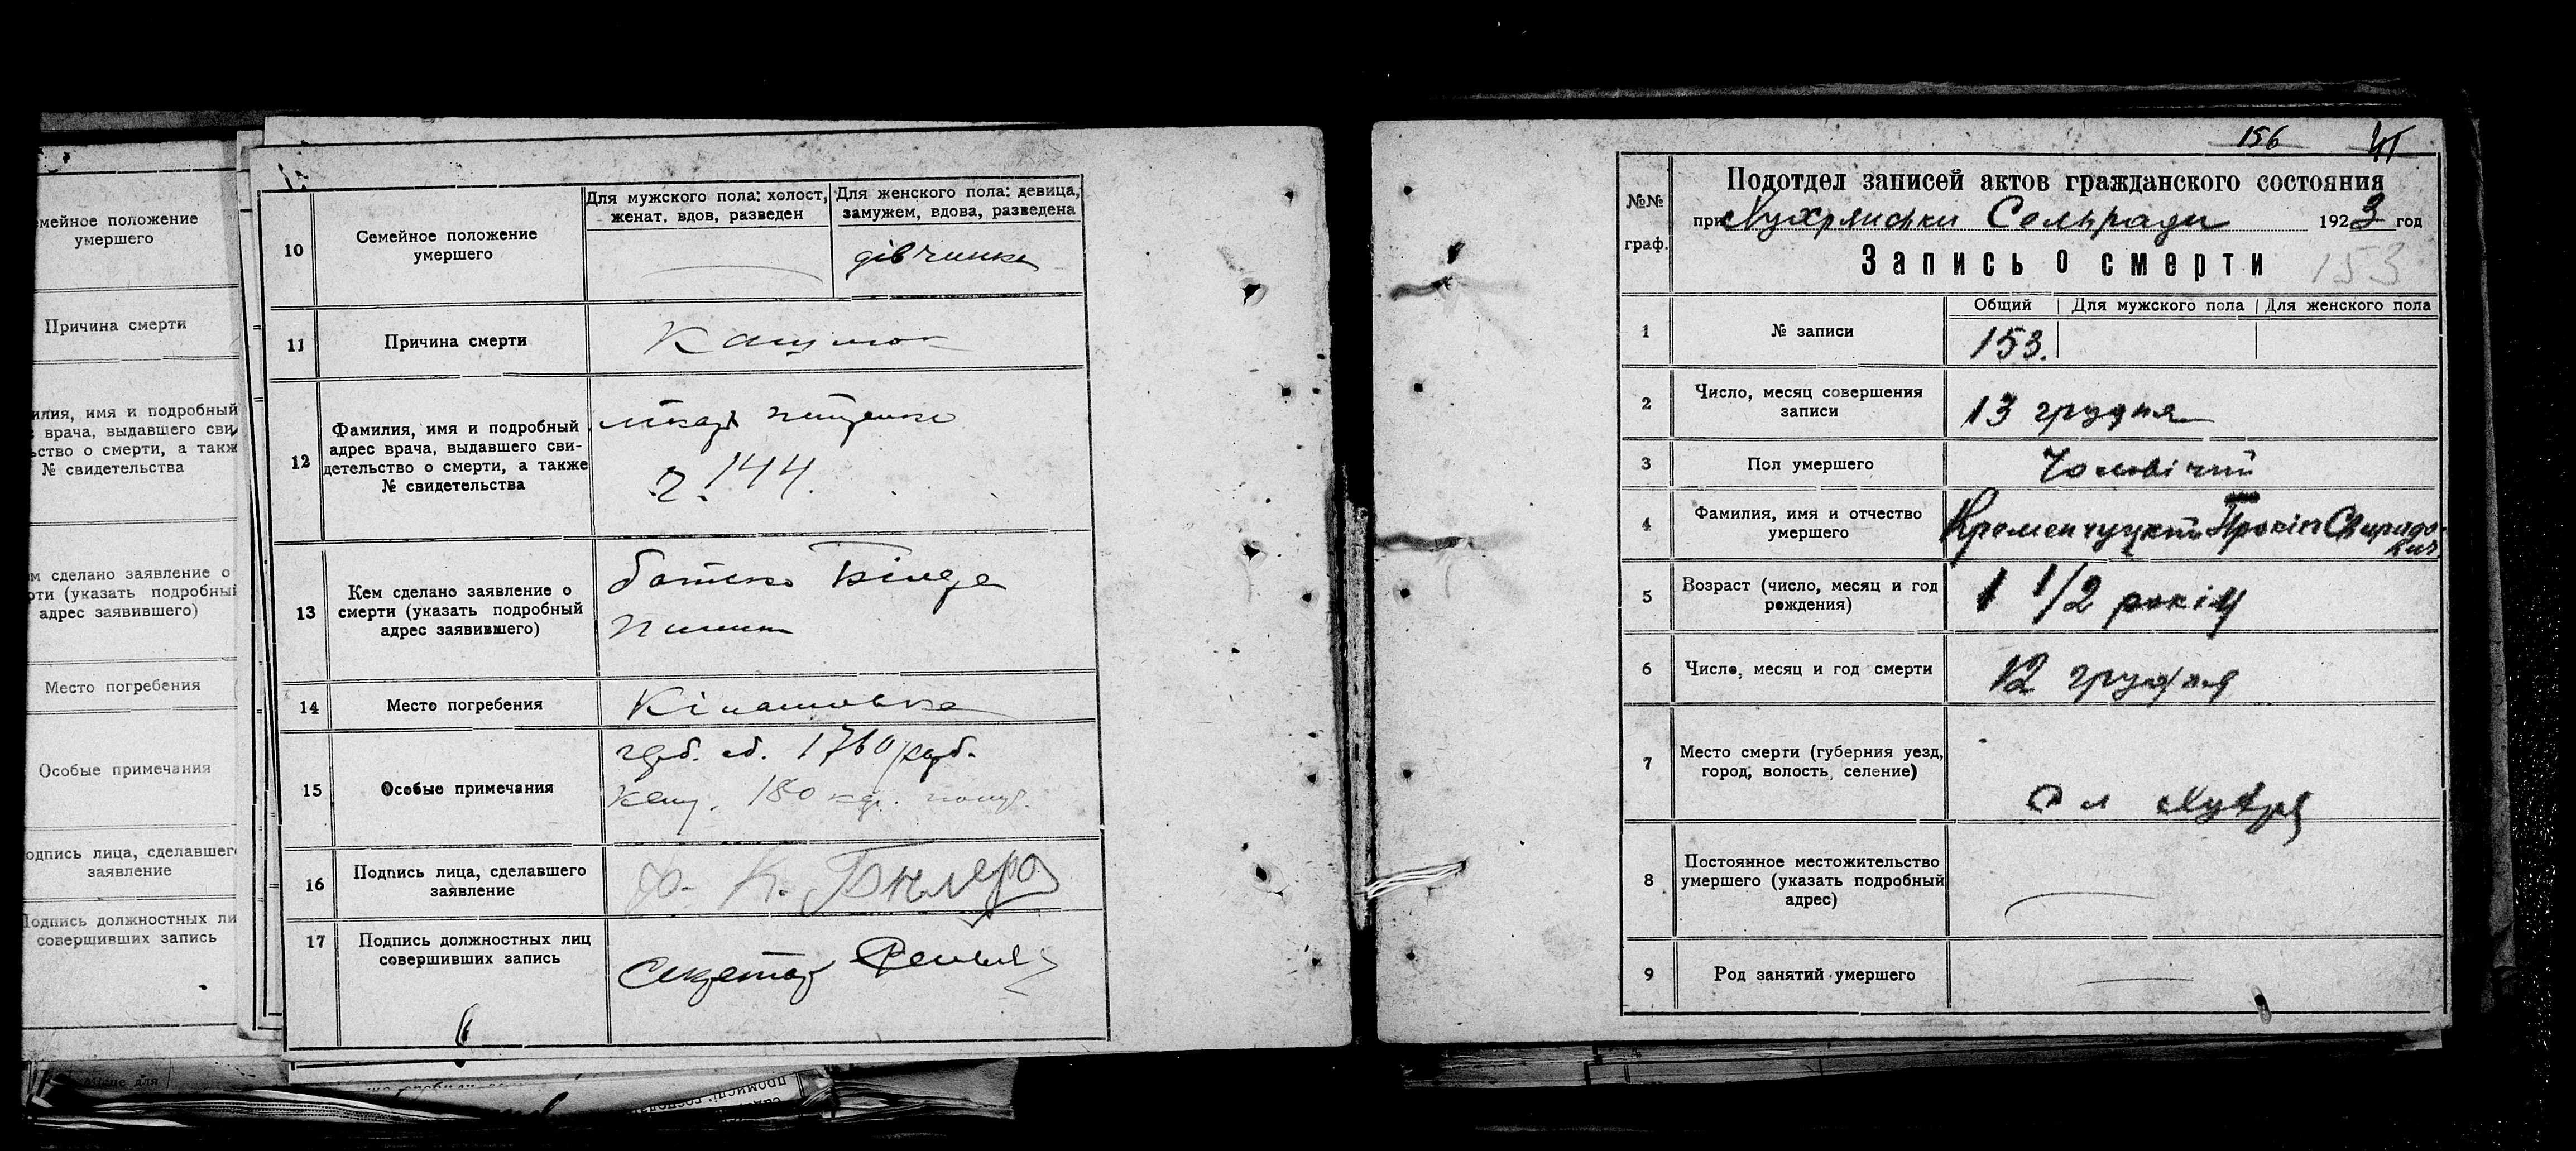 емейное положение
умершего
Причина смерти
илия, имя и подробный
врача, выдавшего сви
ство о смерти, а такж
№ свидетельства
м сделано заявление о
рти (указать подробный
адрес заявившего)
Место погребения
Особые примечания
одпись лица, сделавшег
заявление
Подпись должностных ли
совершивших запись
10
Семейное положение
умершего
Для мужского пола: холост,
женат, вдов, разведен
Для женского пола: девица,
замужем, вдова, разведена
дівчинка
11
Причина смерти
Кашлюк
12
Фамилия, имя и подробный
адрес врача, выдавшего сви-
детельство о смерти, а также
№ свидетельства
144.
13
Кем сделано заявление о
смерти (указать подробный
адрес заявившего)
батько
14
Место погребения
15
Особые примечания
герб. сб. 1760 руб.
Канц. 180
16
Подпись лица, сделавшего
заявление
17
Подпись должностных лиц
совершивших запись
Секретар
156
№№
граф.
Подотдел записей актов гражданского состояния
при Сельради 1923 год
Запись о смерти
153
1
№ записи
Общий
Для мужского пола
Для женского пола
153.
2
Число, месяц совершения
записи
13 грудня
3
Пол умершего
Чоловічий
4
Фамилия, имя и отчество
умершего
Кременчуцкий Прокіп Свиридо-
вич
5
Возраст (число, месяц и год
рождения)
1 1/2 років
6
Число, месяц и год смерти
12 грудня
7
Место смерти (губерния уезд,
город, волость, селение)
8
Постоянное местожительство
умершего (указать подробный
адрес)
9
Род занятий умершего